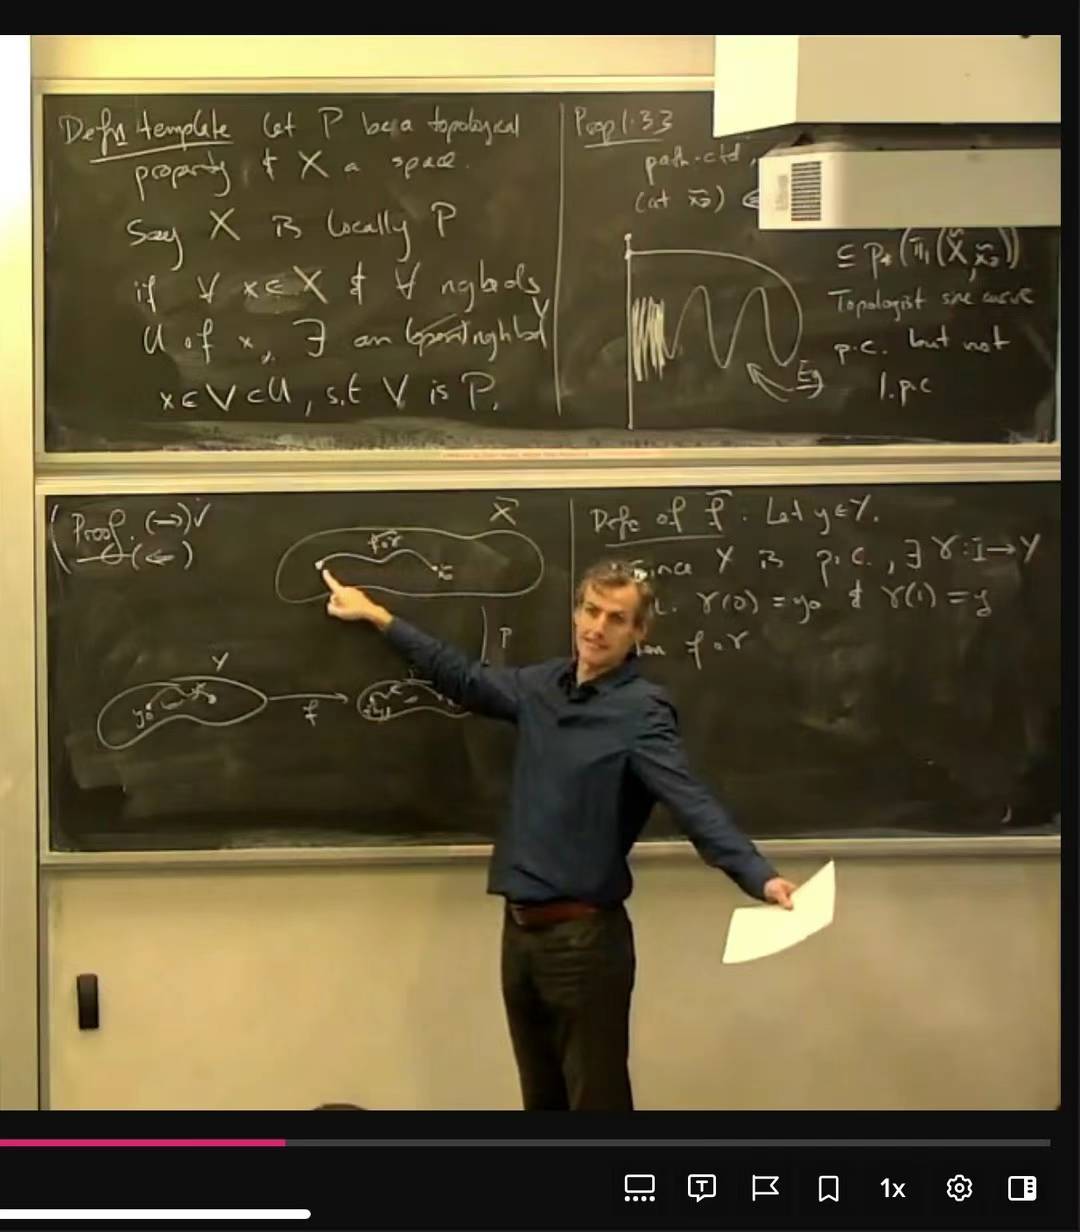 Defn template Let P be a topological
property & X a space.
Say X is locally P
if ∀ x∈X & ∀ nghbds
U of x, ∃ an (open) nghbd V
x∈V⊂U, s.t V is P.
Prop 1.33
path-ctd,
(at x̃₀)
⊆ p⁎(π₁(X̃, x̃₀))
Topologist sine curve
p.c. but not
l.p.c
Eg
Proof. (→) ✓
(←)
X̃
f∘γ
x̃₀
p
Y
y₀
f
Defn of f̃. Let y∈Y.
Since Y is p.c., ∃ γ:I→Y
γ(0)=y₀ & γ(1)=y
f∘γ
1x